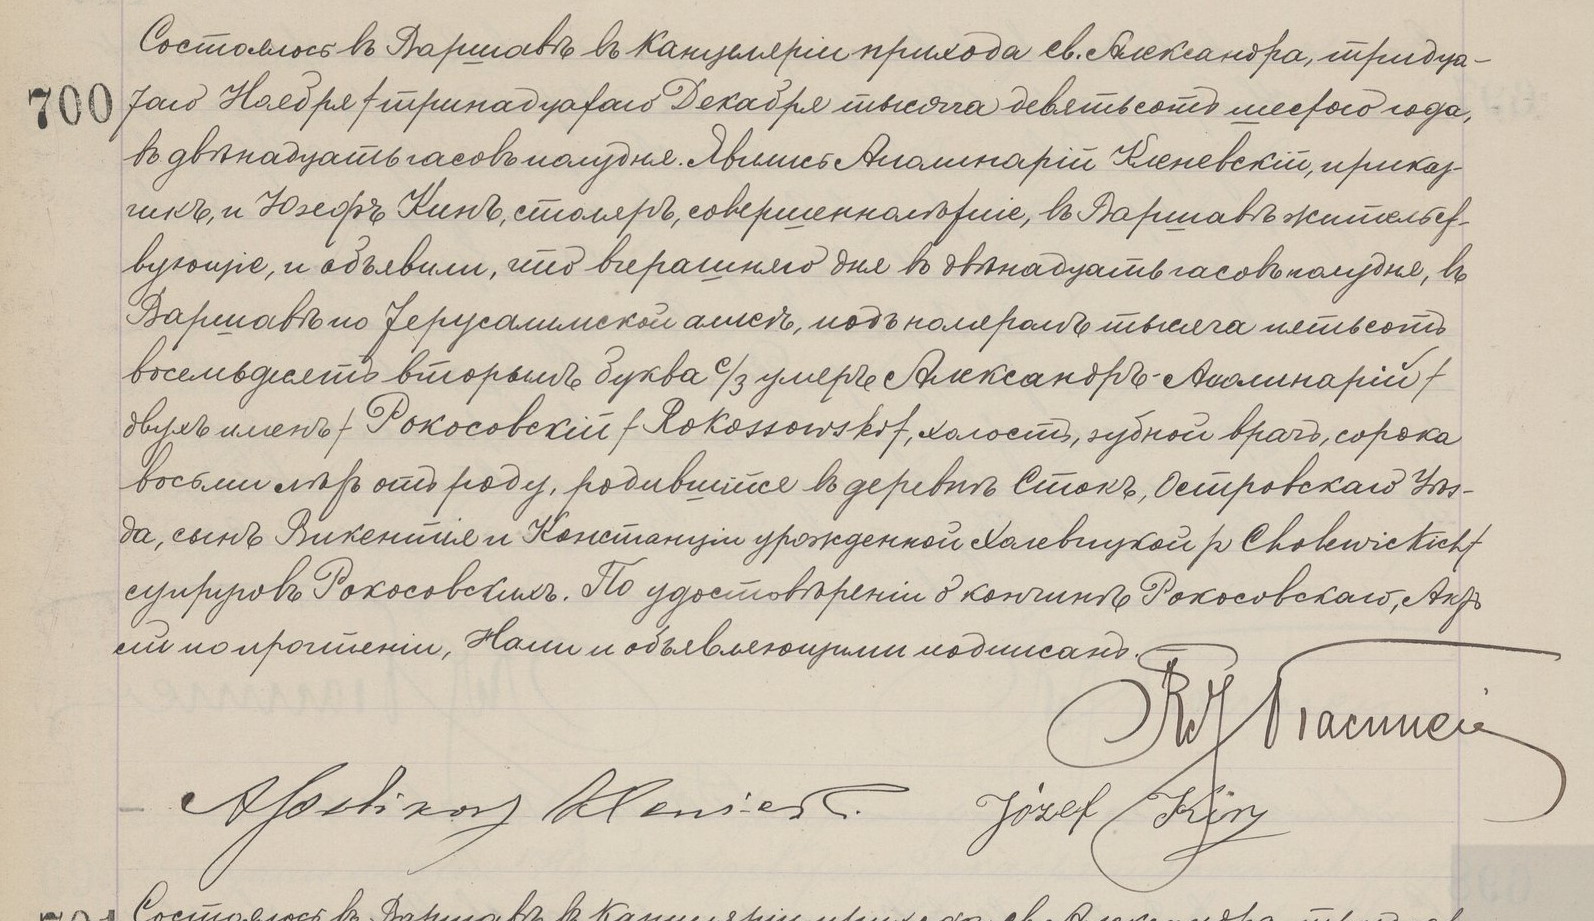 Состоялось въ Варшавѣ въ Канцеляріи прихода св. Александра, тридца-
700 таго Ноября / тринадцатаго Декабря тысяча девятьсотъ шестого года,
въ двѣнадцать часовъ полудня. Явились Аполинарій Кленевскій, приказ-
чикъ, и Юзефъ Кинъ, столяръ, совершеннолѣтніе, въ Варшавѣ жительст-
вующіе, и объявили, что вчерашняго дня въ двѣнадцать часовъ полудня, въ
Варшавѣ по Іерусалимской аллеѣ, подъ номеромъ тысяча пятьсотъ
восемьдесятъ вторымъ буква с/з умеръ Александръ-Аполинарій /
двухъ именъ / Рокосовскій / Rokossowski /, холостъ, зубной врачъ, сорока
восьми лѣтъ отъ роду, родившійся въ деревнѣ Стокъ, Островскаго Уѣз-
да, сынъ Викентія и Констанціи урожденной Холевицкой / z Cholewickich /
супруговъ Рокосовскихъ. По удостовѣреніи о кончинѣ Рокосовскаго, Актъ
сей по прочтеніи, Нами и объявляющими подписанъ.
Józef Kin
Состоялось въ Варшавѣ въ Канцеляріи прихода св. Александра,